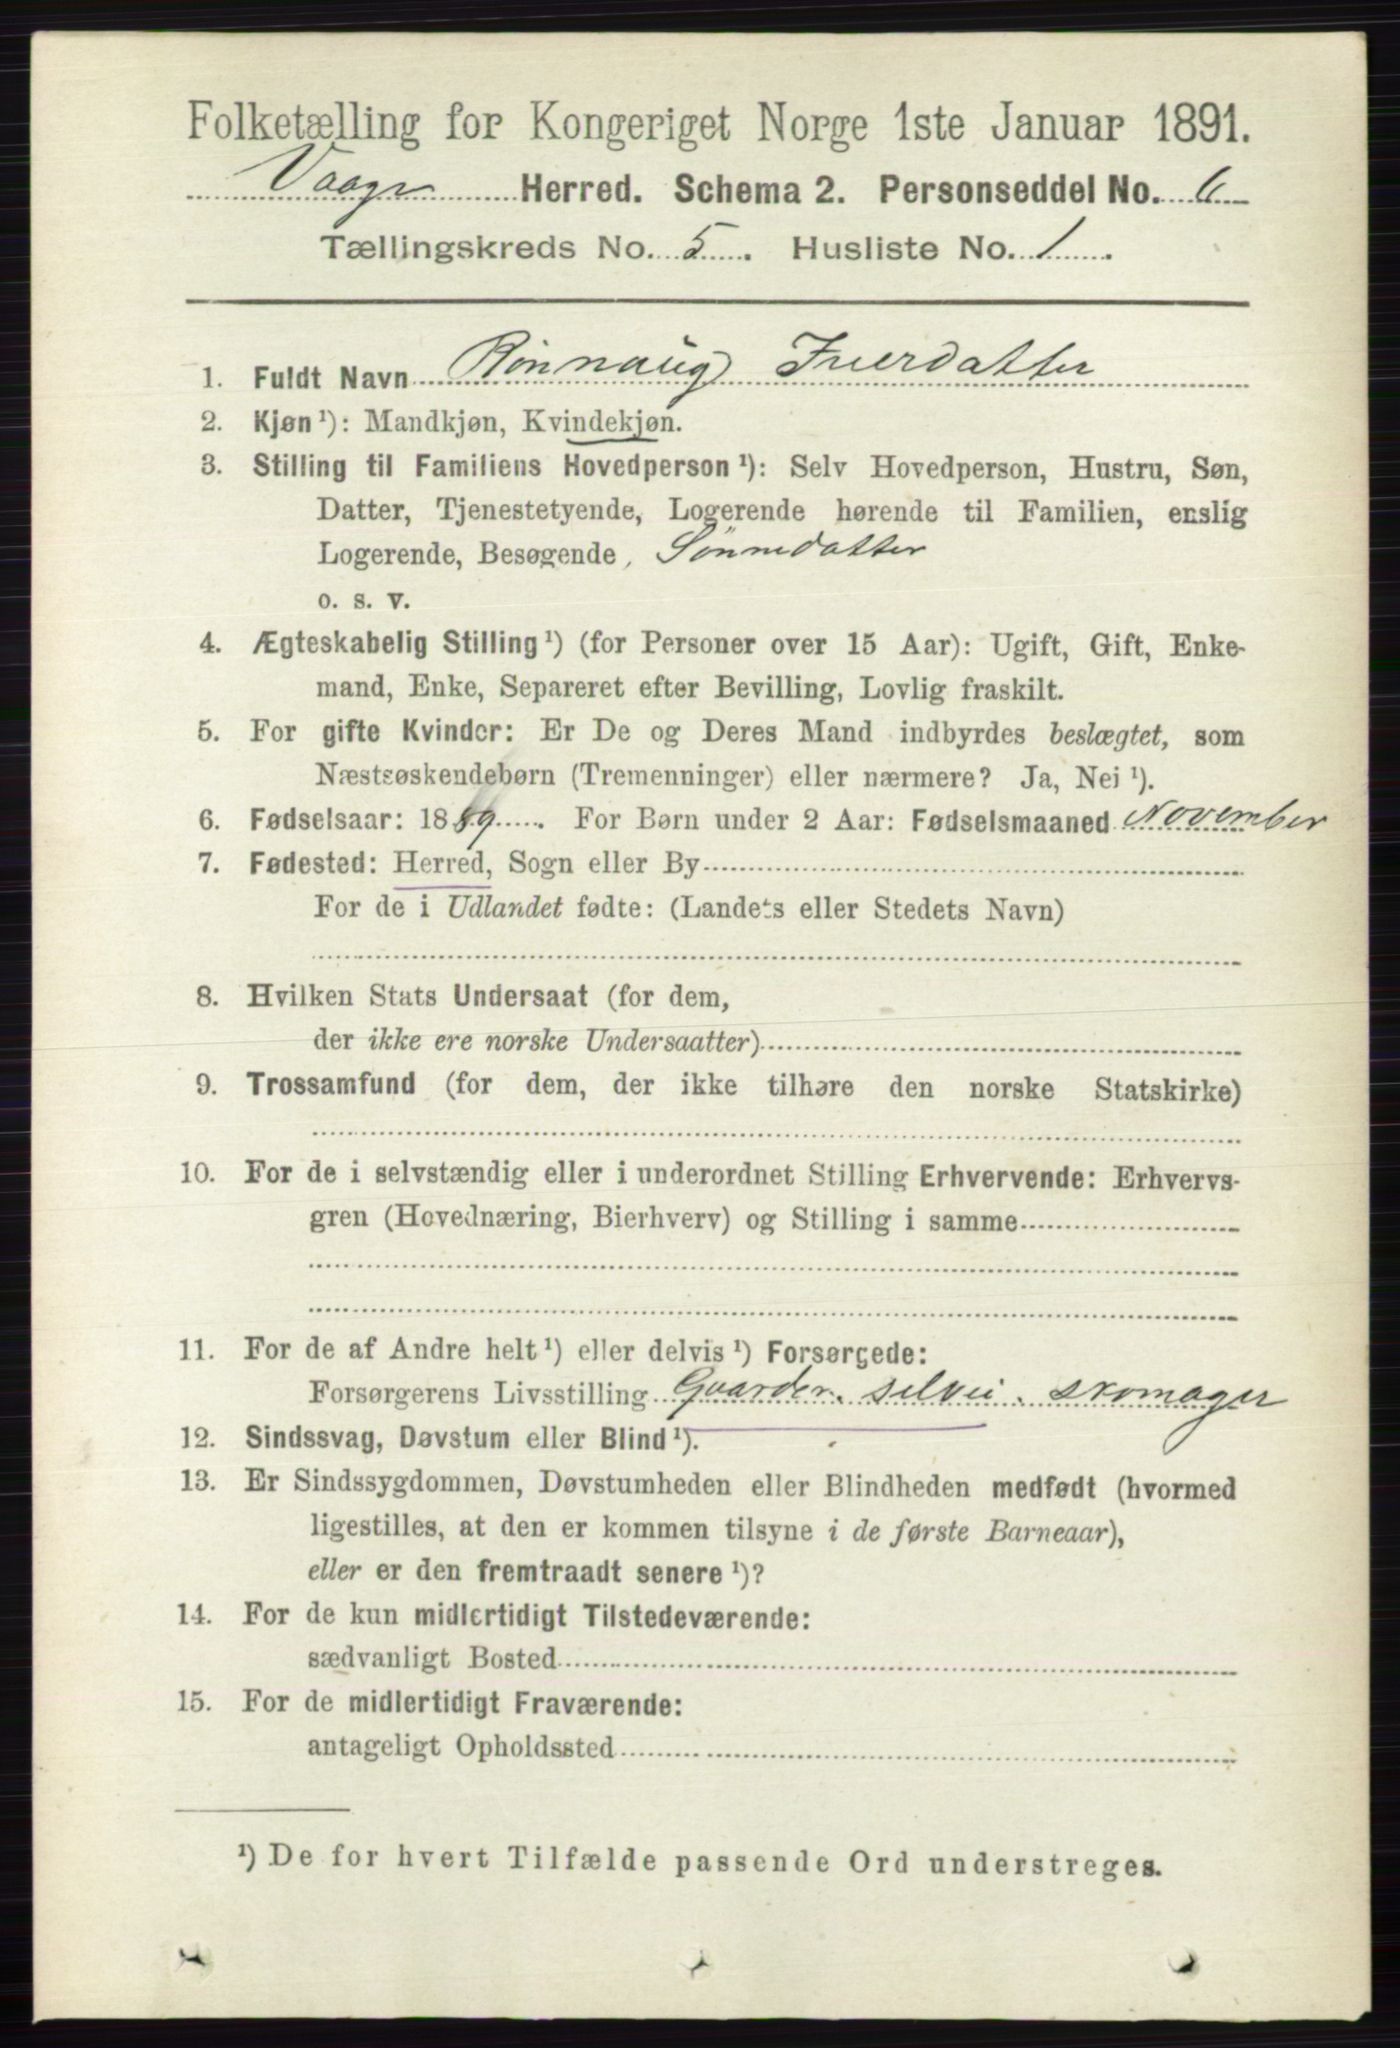 Folketælling for Kongeriget Norge 1ste Januar 1891.
Vaage Herred. Schema 2. Personseddel No. 6
Tællingskreds No. 5. Husliste No. 1.
1. Fuldt Navn Rönnaug Iverdatter
2. Kjøn ¹): Mandkjøn, Kvindekjøn.
3. Stilling til Familiens Hovedperson ¹): Selv Hovedperson, Hustru, Søn,
Datter, Tjenestetyende, Logerende hørende til Familien, enslig
Logerende, Besøgende, Sönnedatter
o. s. v.
4. Ægteskabelig Stilling ¹) (for Personer over 15 Aar): Ugift, Gift, Enke-
mand, Enke, Separeret efter Bevilling, Lovlig fraskilt.
5. For gifte Kvinder: Er De og Deres Mand indbyrdes beslægtet, som
Næstsøskendebørn (Tremenninger) eller nærmere? Ja, Nei ¹).
6. Fødselsaar: 1889. For Børn under 2 Aar: Fødselsmaaned November
7. Fødested: Herred, Sogn eller By
For de i Udlandet fødte: (Landets eller Stedets Navn)
8. Hvilken Stats Undersaat (for dem,
der ikke ere norske Undersaatter)
9. Trossamfund (for dem, der ikke tilhøre den norske Statskirke)
10. For de i selvstændig eller i underordnet Stilling Erhvervende: Erhvervs-
gren (Hovednæring, Bierhverv) og Stilling i samme
11. For de af Andre helt ¹) eller delvis ¹) Forsørgede:
Forsørgerens Livsstilling Gaardbr. selvei. skomager
12. Sindssvag, Døvstum eller Blind ¹).
13. Er Sindssygdommen, Døvstumheden eller Blindheden medfødt (hvormed
ligestilles, at den er kommen tilsyne i de første Barneaar),
eller er den fremtraadt senere ¹)?
14. For de kun midlertidigt Tilstedeværende:
sædvanligt Bosted
15. For de midlertidigt Fraværende:
antageligt Opholdssted
¹) De for hvert Tilfælde passende Ord understreges.